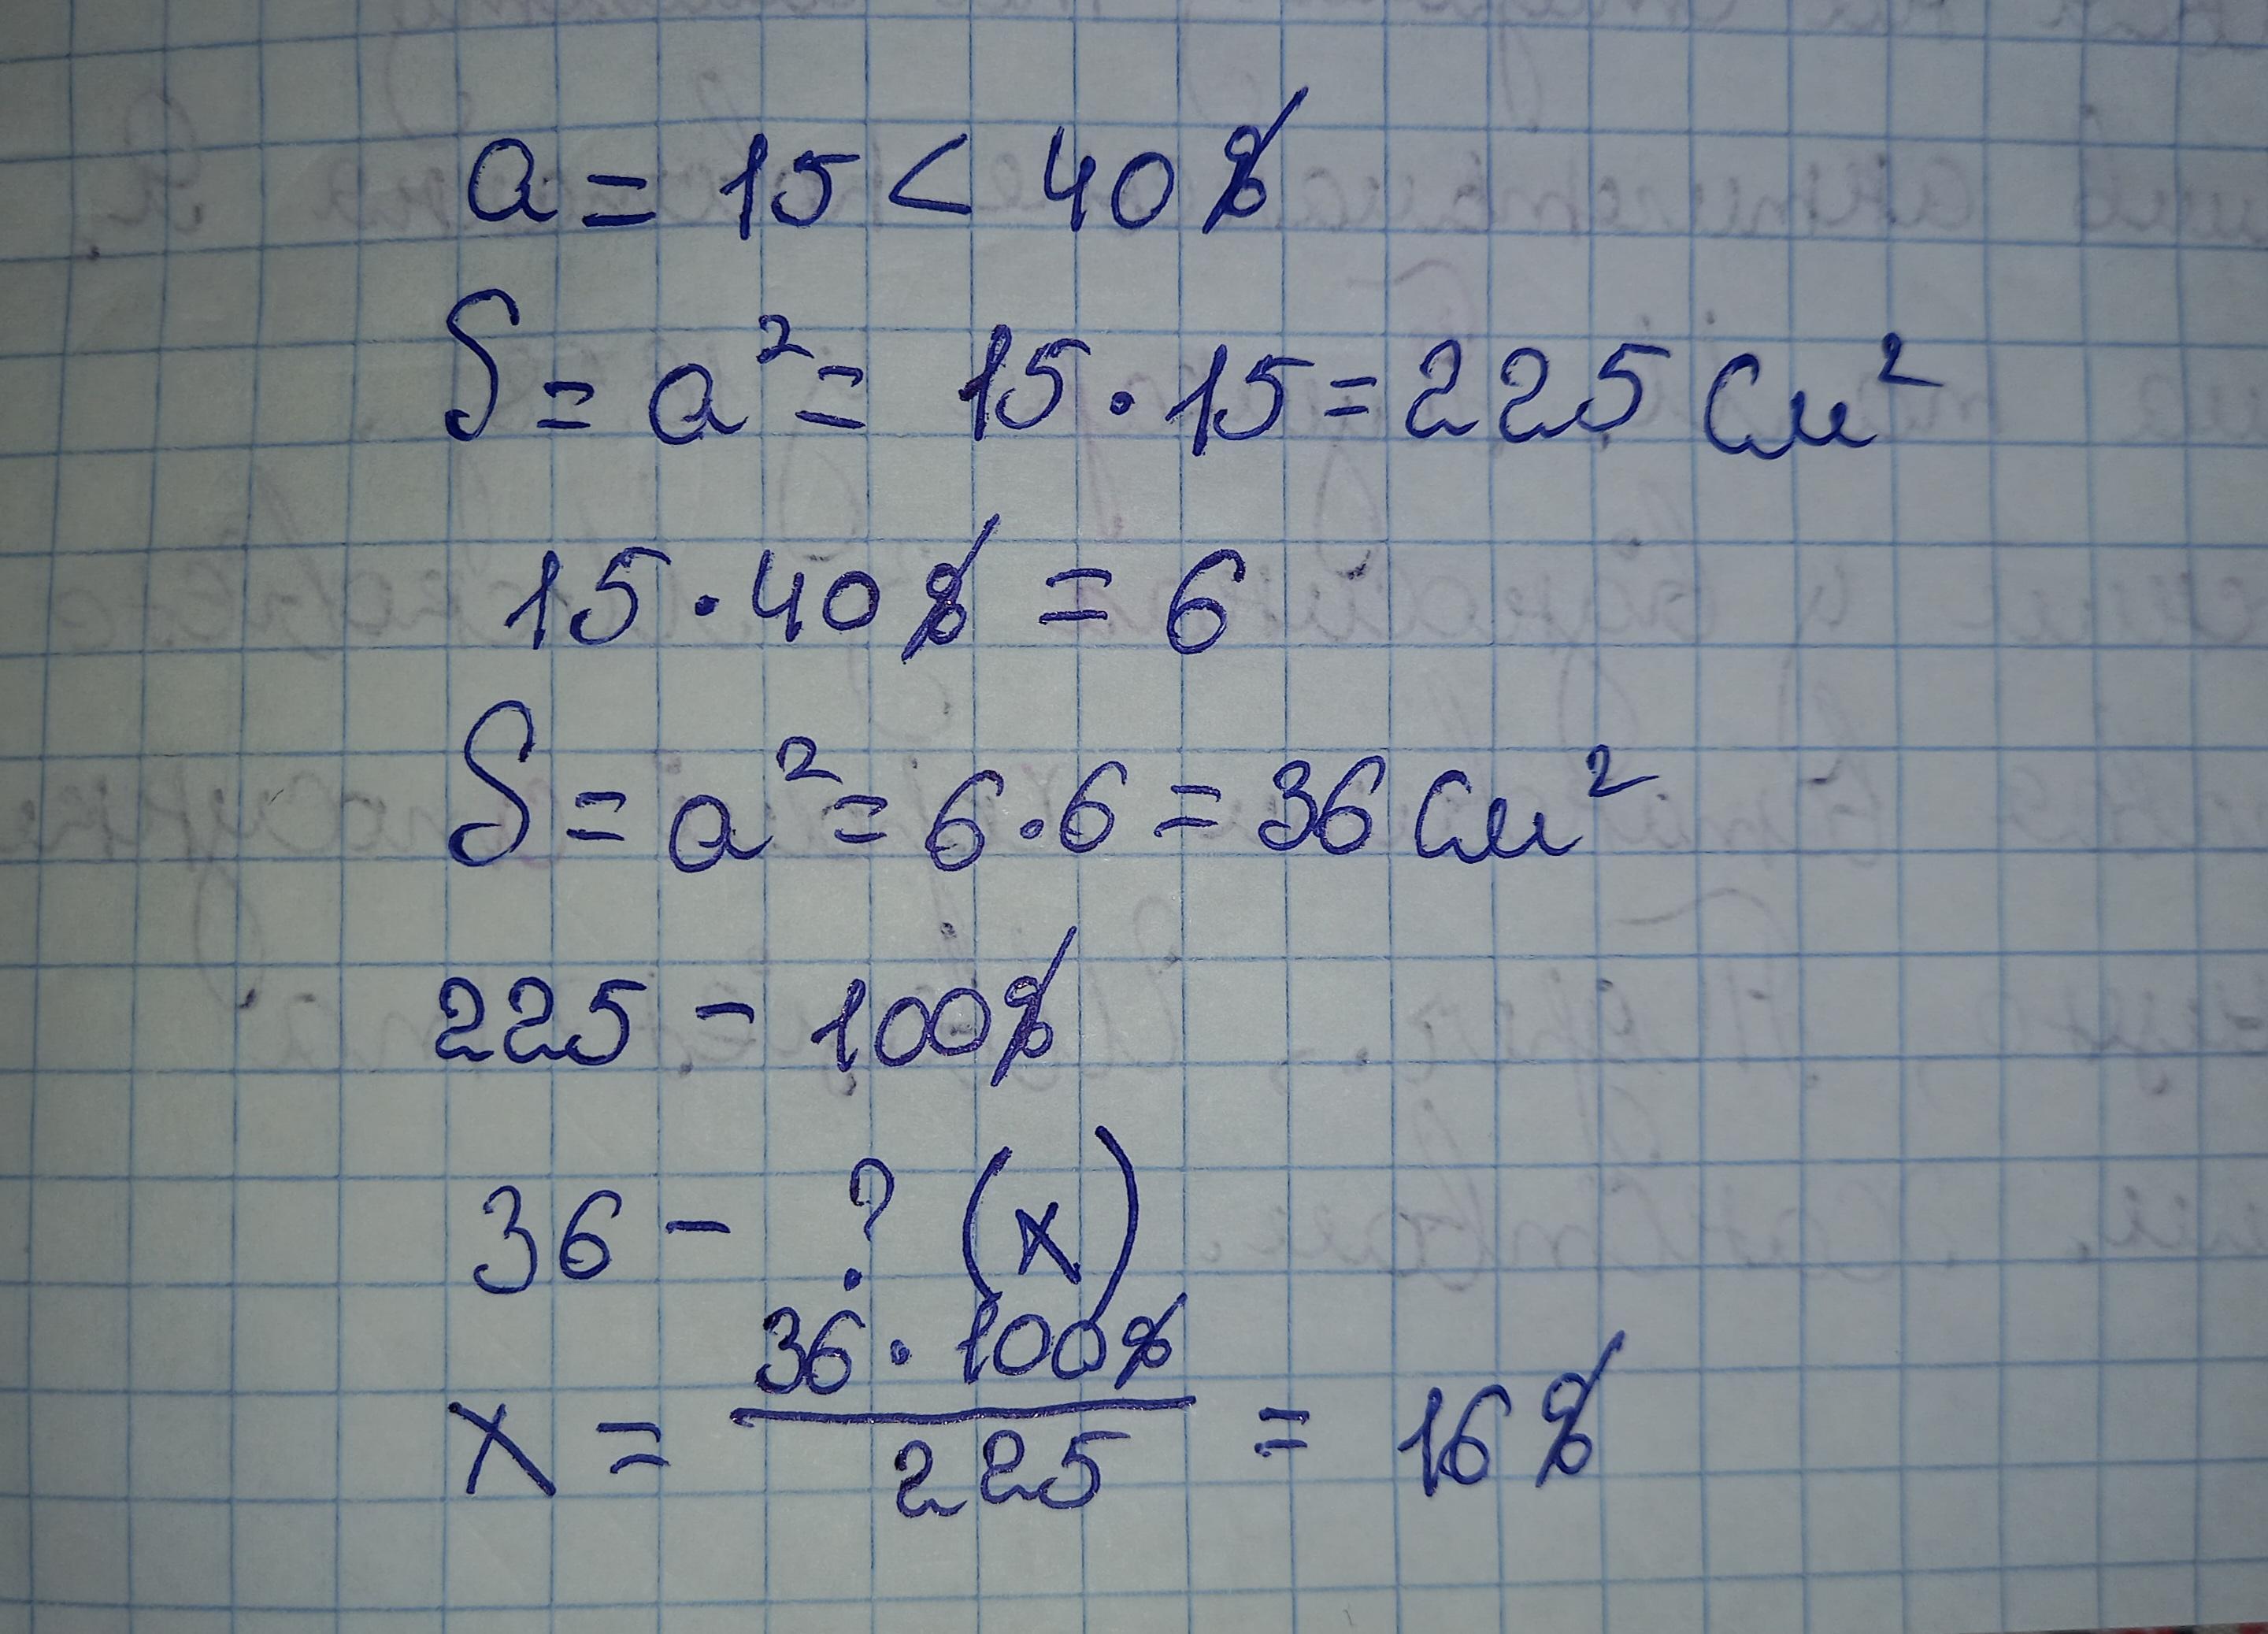 a = 15 < 40%
S = a² = 15 · 15 = 225 см²
15 · 40% = 6
S = a² = 6 · 6 = 36 см²
225 - 100%
36 - ? (x)
x = 36 · 100% / 225 = 16%